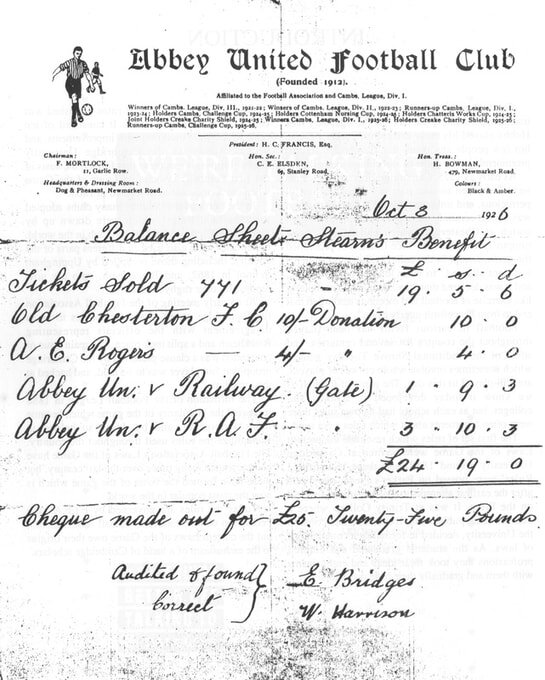 Abbey United Football Club
(Founded 1912).
Affiliated to the Football Association and Cambs. League, Div. I.
Winners of Cambs. League, Div. III., 1921-22; Winners of Cambs. League, Div. II., 1922-23; Runners-up Cambs. League, Div. I.,
1923-24; Holders Cambs. Challenge Cup, 1924-25; Holders Cottenham Nursing Cup, 1924-25; Holders Chatteris Works Cup, 1924-25;
Joint Holders Creake Charity Shield, 1924-25; Winners Cambs. League, Div. I., 1925-26; Holders Creake Charity Shield, 1925-26;
Runners-up Cambs. Challenge Cup, 1925-26.
President: H. C. FRANCIS, Esq.
Chairman: Hon. Sec.: Hon. Treas.:
F. MORTLOCK, C. E. ELSDEN, H. BOWMAN,
11, Garlic Row. 69, Stanley Road. 479, Newmarket Road.
Headquarters & Dressing Room: Colours:
Dog & Pheasant, Newmarket Road. Black & Amber.
Oct 8 1926
Balance Sheet Stearn's Benefit
£ s d
Tickets Sold 771 - 19 . 5 . 6
Old Chesterton F. C. 10/- Donation 10 . 0
A. E. Rogers 4/- " 4 . 0
Abbey Un. v Railway (Gate) 1 . 9 . 3
Abbey Un. v R. A. F. " 3 . 10 . 3
£24 19 . 0
Cheque made out for £25 Twenty-Five Pounds
Audited & found } E. Bridges
Correct } W. Harrison